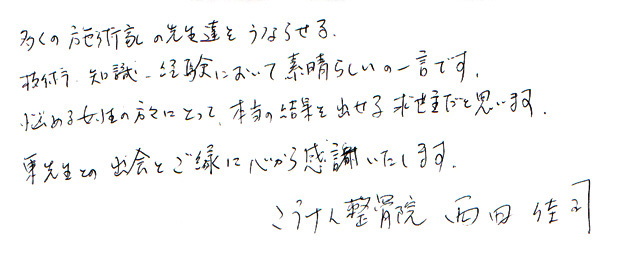 多くの施術家の先生達をうならせる、
技術、知識、経験において素晴らしいの一言です。
悩める女性の方々にとって、本当の結果を出せる救世主だと思います。
東先生との出会とご縁に心から感謝いたします。
こうけん整骨院 西田 佳司